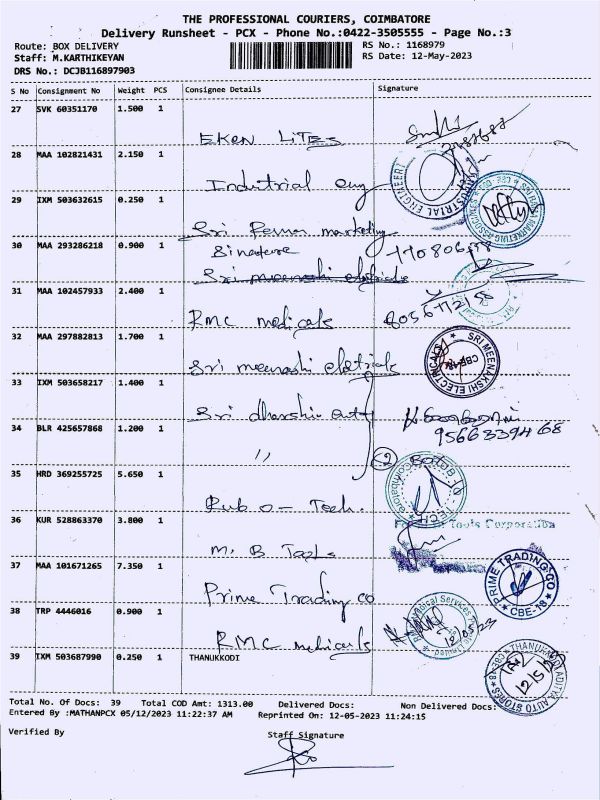 THE PROFESSIONAL COURIERS, COIMBATORE
Delivery Runsheet - PCX - Phone No.:0422-3505555 - Page No.:3
Route: BOX DELIVERY
RS No.: 1168979
Staff: M.KARTHIKEYAN
RS Date: 12-May-2023
DRS No.: DCJB116897903
S No Consignment No Weight PCS Consignee Details Signature
27 SVK 60351170 1.500 1
EKON LiTES
28 MAA 102821431 2.150 1
Industrial eng
INDUSTRIAL ENGINEERI
29 IXM 503632615 0.250 1
Sri marketing
SRI MARKETING
30 MAA 293286218 0.900 1
Sri meenashi eletricals
31 MAA 102457933 2.400 1
RMC medicals
8056772150
32 MAA 297882813 1.700 1
Sri meenashi eletricals
SRI MEENAKSHI ELECTRICALS
CBE-18
33 IXM 503658217 1.400 1
Sri dharshini
34 BLR 425657868 1.200 1
"
2
9566339468
35 HRD 369255725 5.650 1
Rub o - Tech.
36 KUR 528863370 3.800 1
M. B Tools
Tools Corporation
37 MAA 101671265 7.350 1
Prime Trading co
PRIME TRADING CO
CBE-18
38 TRP 4446016 0.900 1
RMC medicals
12/05/23
39 IXM 503687990 0.250 1 THANUKKODI
THANUKKODI ADITYA AUTO STORES
Total No. Of Docs: 39 Total COD Amt: 1313.00 Delivered Docs: Non Delivered Docs:
Entered By :MATHANPCX 05/12/2023 11:22:37 AM Reprinted On: 12-05-2023 11:24:15
Verified By
Staff Signature